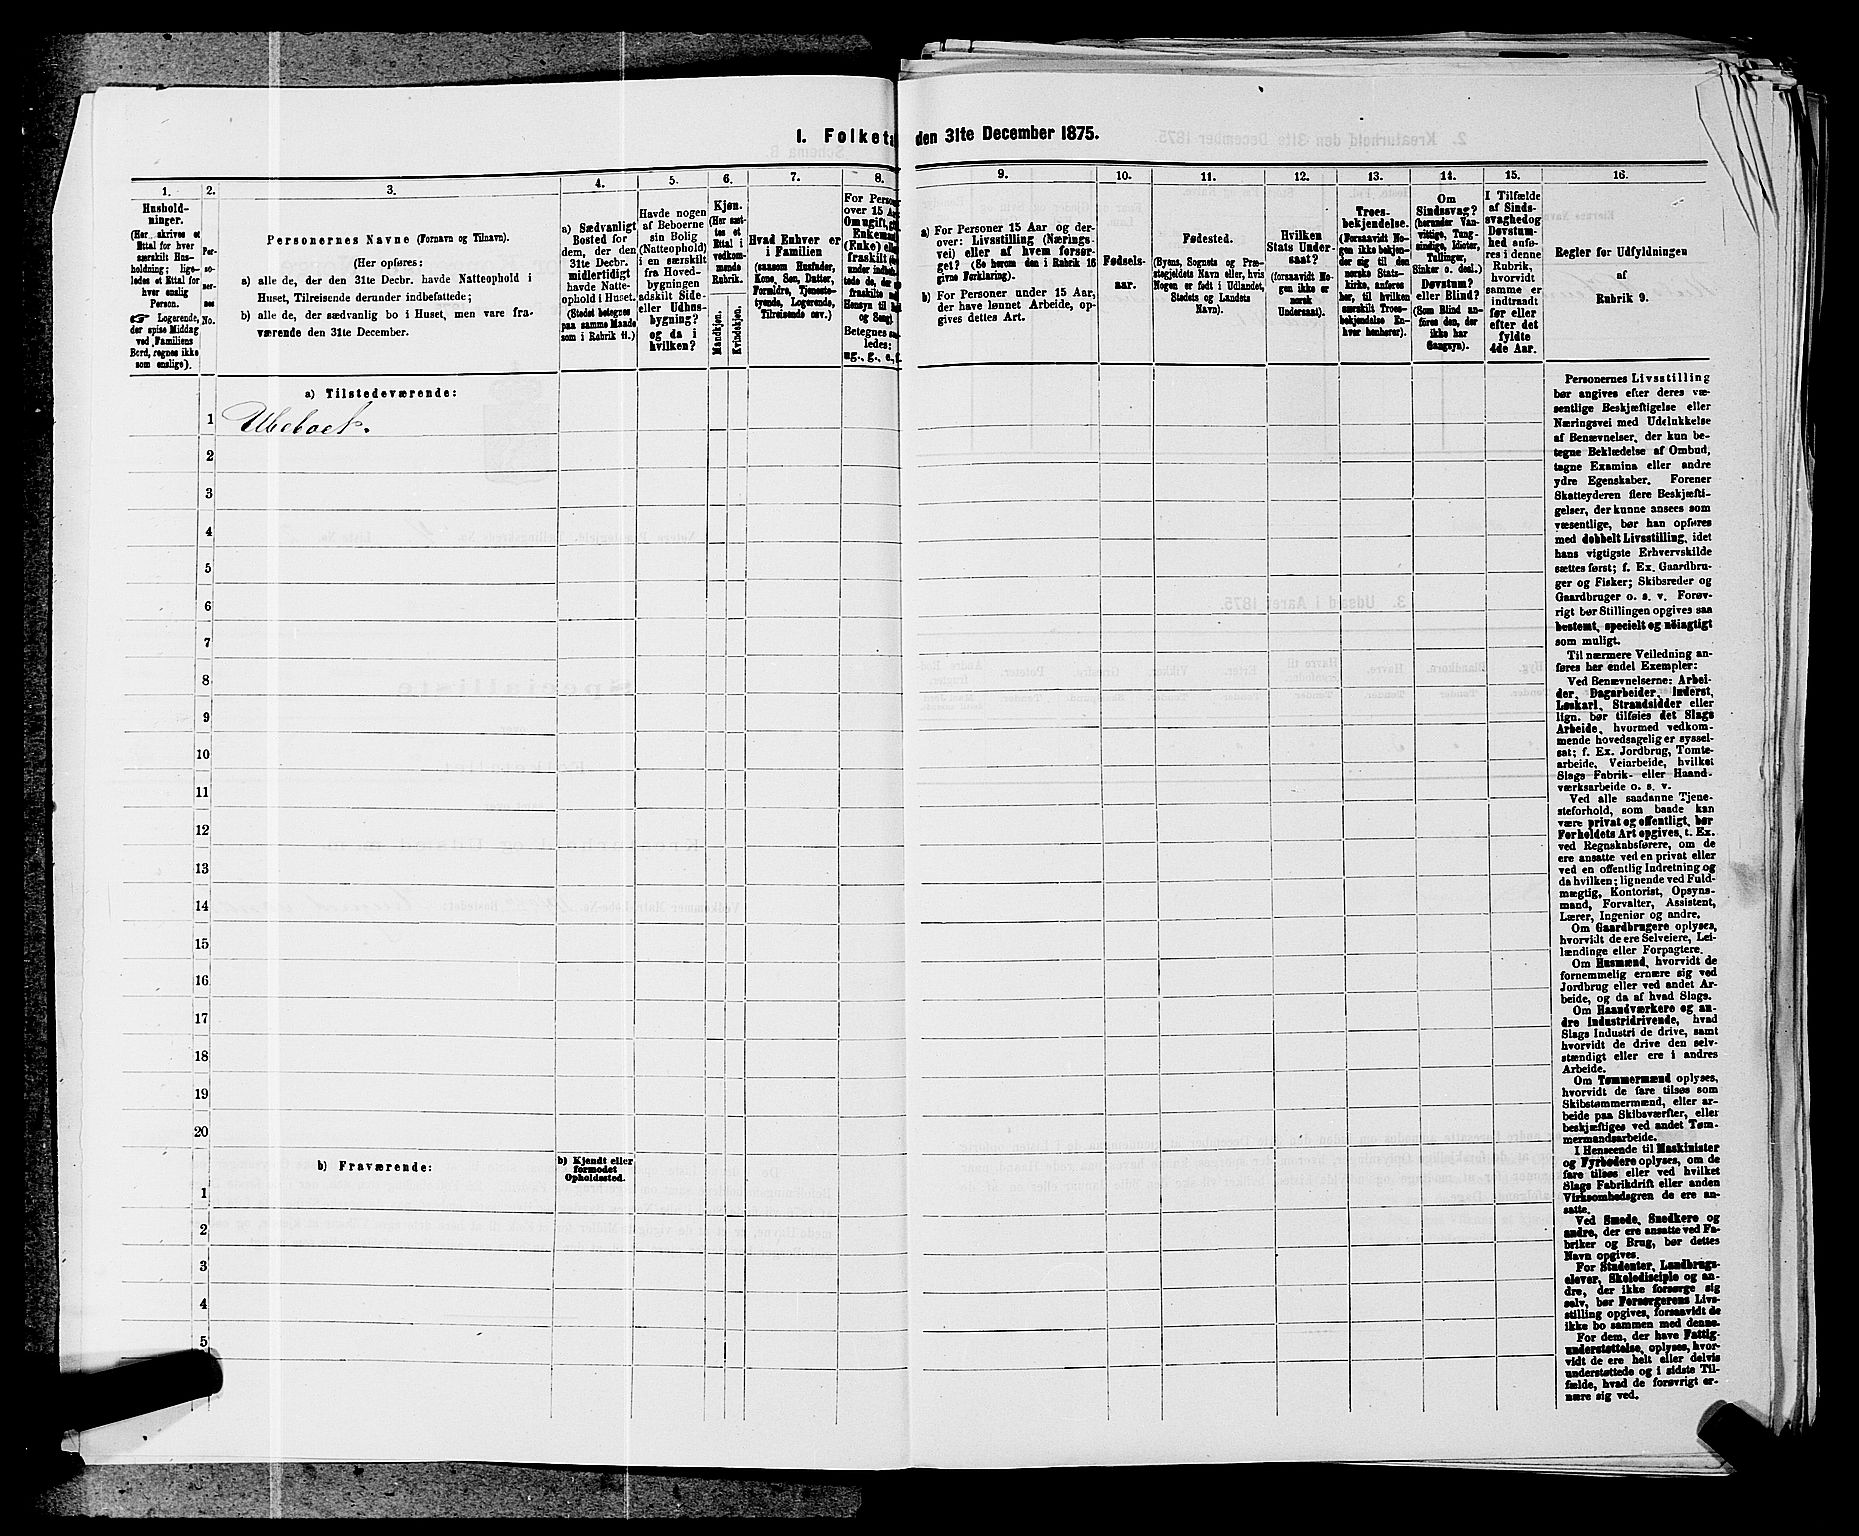 1. Folketa den 31te December 1875.
1. 2. 3. 4. 5. 6. 7. 8. 9. 10. 11. 12. 13. 14. 15. 16.
Hushold-
ninger.
(Her skrives et
Ettal for hver
særskilt Hus-
holdning; lige-
ledes et Ettal for
hver enslig
Person.
☞ Logerende,
der spise Middag
ved Familiens
Bord, regnes ikke
som enslige).
Per-
so-
ner-
nes
No.
Personernes Navne (Fornavn og Tilnavn).
(Her opføres:
a) alle de, der den 31te Decbr. havde Natteophold i
Huset, Tilreisende derunder indbefattede;
b) alle de, der sædvanlig bo i Huset, men vare fra-
værende den 31te December.
a) Sædvanligt
Bosted for
dem, der den
31te Decbr.
midlertidigt
havde Natte-
ophold i Huset.
(Stedet betegnes
paa samme Maade
som i Rubrik 11.)
Havde nogen
af Beboerne
sin Bolig
(Natteophold)
i en særskilt
fra Hoved-
bygningen
adskilt Side-
eller Udhus-
bygning?
og da i
hvilken?
Kjøn.
(Her sæt-
tes et
Ettal i
vedkom-
mende
Rubrik.
Mandkjøn.
Kvindekjøn.
Hvad Enhver er
i Familien
(saasom Husfader,
Kone, Søn, Datter,
Forældre, Tjeneste-
tyende, Logerende,
Tilreisende osv.).
For Person
over 15 Aa
Om ugift, g
Enkemand
(Enke) elle
fraskilt
under indbe
tede de, der
fraskilte
Hensyn til
og Seng).
Betegnes
ledes:
ug., g., e., f.
a) For Personer 15 Aar og der-
over: Livsstilling (Nærings-
vei) eller af hvem forsør-
get? (Se herom den i Rubrik 16
givne Forklaring).
b) For Personer under 15 Aar,
der have lønnet Arbeide, op-
gives dettes Art.
Fødsels-
aar.
Fødested.
(Byens, Sognets og Præ-
stegjeldets Navn eller, hvis
Nogen er født i Udlandet,
Stedets og Landets
Navn).
Hvilken
Stats Under-
saat?
(forsaavidt No-
gen ikke er
norsk
Undersaat).
Troes-
bekjendelse.
(Forsaavidt No-
gen ikke bekjen-
der sig til den
norske Stats-
kirke, anføres
her, til hvilken
særskilt Troes-
bekjendelse En-
hver henhører).
Om
Sindssvag?
(herunder Van-
vittige, Tung-
sindige, Idioter,
Tullinger,
Sinker o. desl.)
Døvstum?
eller Blind?
(Som Blind an-
føres den, der
ikke har
Gangsyn).
I Tilfælde
af Sinds-
svaghed og
Døvstum-
hed anfø-
res i denne
Rubrik,
hvorvidt
samme er
indtraadt
før eller
efter det
fyldte
4de Aar.
Regler for Udfyldningen
af
Rubrik 9.
a) Tilstedeværende:
1 Ubeboet.
2
3
4
5
6
7
8
9
10
11
12
13
14
15
16
17
18
19
20
b) Fraværende:
b) Kjendt eller
formodet
Opholdssted.
1
2
3
4
5
Personernes Livsstilling
bør angives efter deres væ-
sentlige Beskjæftigelse eller
Næringsvei med Udelukkelse
af Benævnelser, der kun be-
tegne Beklædelse af Ombud,
tagne Examina eller andre
ydre Egenskaber. Forener
Skatteyderen flere Beskjæfti-
gelser, der kunne ansees som
væsentlige, bør han opføres
med dobbelt Livsstilling, idet
hans vigtigste Erhvervskilde
sættes først; f. Ex. Gaardbru-
ger og Fisker; Skibsreder og
Gaardbruger o. s. v. Forøv-
rigt bør Stillingen opgives saa
bestemt, specielt og nøiagtigt
som muligt.
Til nærmere Veiledning an-
føres her endel Exempler:
Ved Benævnelserne: Arbei-
der, Dagarbeider, Inderst,
Løskarl, Strandsidder eller
lign. bør tilføies det Slags
Arbeide, hvormed vedkom-
mende hovedsagelig er syssel-
sat; f. Ex. Jordbrug, Tomte-
arbeide, Veiarbeide, hvilket
Slags Fabrik- eller Haand-
værksarbeide o. s. v.
Ved alle saadanne Tjene-
steforhold, som baade kan
være privat og offentligt, bør
Forholdets Art opgives, t. Ex.
ved Regnskabsførere, om de
ere ansatte ved en privat eller
ved en offentlig Indretning og
da hvilken; lignende ved Fuld-
mægtig, Kontorist, Opsyns-
mand, Forvalter, Assistent,
Lærer, Ingeniør og andre.
Om Gaardbrugere oplyses,
hvorvidt de ere Selveiere, Lei-
lændinge eller Forpagtere.
Om Husmænd, hvorvidt de
fornemmelig ernære sig ved
Jordbrug eller ved andet Ar-
beide, og da af hvad Slags.
Om Haandværkere og an-
dre Industridrivende, hvad
Slags Industri de drive, samt
hvorvidt de drive den selv-
stændigt eller ere i andres
Arbeide.
Om Tømmermænd oplyses,
hvorvidt de fare tilsøs som
Skibstømmermænd, eller ar-
beide paa Skibsværfter, eller
beskjæftiges ved andet Tøm-
mermandsarbeide.
I Henseende til Maskinister
og Fyrbødere oplyses, om de
fare tilsøs eller ved hvilket
Slags Fabrikdrift eller anden
Virksomhedsgren de ere an-
satte.
Ved Smede, Snedkere og
andre, der ere ansatte ved Fa-
briker og Brug, bør dettes
Navn opgives.
For Studenter, Landbrugs-
elever, Skoledisciple og an-
dre, der ikke forsørge sig
selv, bør Forsørgerens Livs-
stilling opgives, forsaavidt de
ikke bo sammen med denne.
For dem, der have Fattig-
understøttelse, oplyses, hvor-
vidt de ere helt eller delvis
understøttede og i sidste Til-
fælde, hvad de forøvrigt er-
nære sig ved.